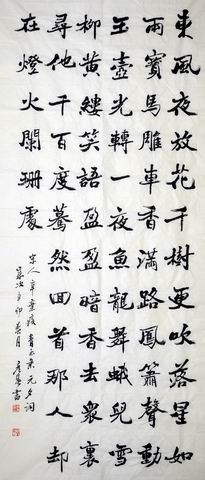 東風夜放花千樹更吹落星如
雨寶馬雕車香滿路鳳簫聲動
玉壺光轉一夜魚龍舞蛾兒雪
柳黃縷笑語盈盈暗香去衆裏
尋他千百度驀然回首那人却
在燈火闌珊處
宋人辛棄疾青玉案元夕詞
歲次辛卯月書